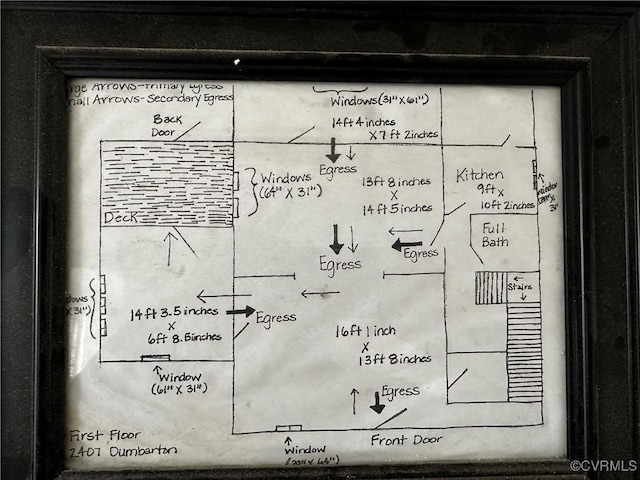 Arrows-Primary Egress
Small Arrows-Secondary Egress
Back
Door
Windows (31" X 61")
14ft 4 inches
X 7 ft 2 inches
Egress
Windows
(64" X 31")
13ft 8 inches
X
14 ft 5 inches
Kitchen
9ft x
10ft 2 inches
Window
Full
Bath
Deck
Egress
Egress
Stairs
14ft 3.5 inches
X
6ft 8.5 inches
Egress
16ft 1 inch
X
13ft 8 inches
Window
(61" X 31")
Egress
First Floor
2407 Dumbarton
Window
Front Door
©CVRMLS